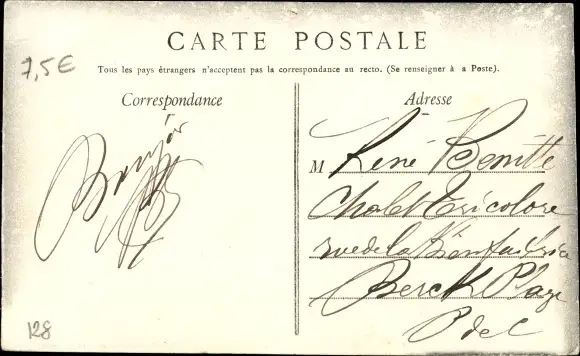 7,5€
CARTE POSTALE
Tous les pays étrangers n'acceptent pas la correspondance au recto. (Se renseigner à a Poste).
Correspondance
Adresse
Bonjour
M René Benitte
Chalet Tricolore
rue de la Bienfaisance
Berck Plage
P de C
128